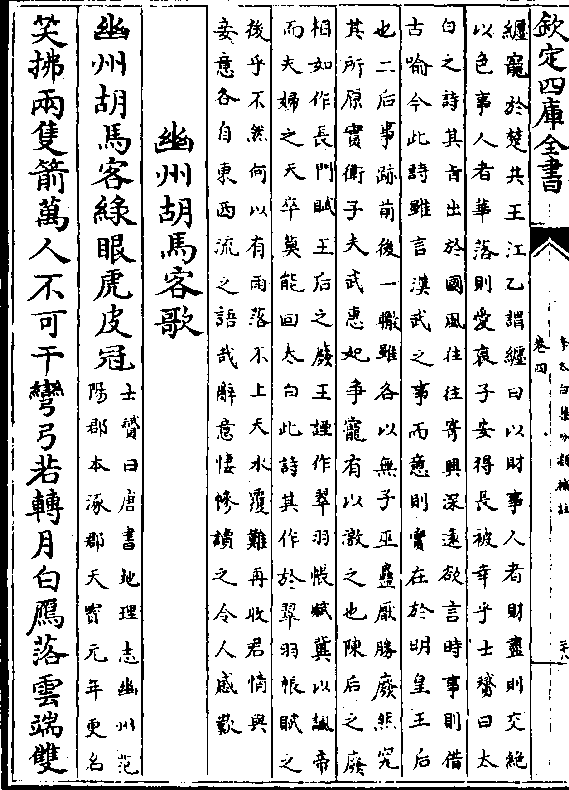 欽定四庫全書
李太白集分類補註
卷四
纏寵於楚共王江乙謂纏曰以財事人者財盡則交絶
以色事人者華落則愛衰子安得長被幸乎士贇曰太
白之詩其旨出於國風往往寄興深逺欲言時事則借
古喻今此詩雖言漢武之事而意則實在於明皇王后
也二后事跡前後一轍雖各以無子巫蠱厭勝廢然究
其所原實衛子夫武惠妃爭寵有以激之也陳后之廢
相如作長門賦王后之廢王諲作翠羽帳賦冀以諷帝
而夫婦之天卒莫能回太白此詩其作於翠羽帳賦之
後乎不然何以有雨落不上天水覆難再收君情與
妾意各自東西流之語哉辭意悽慘讀之令人感歎
幽州胡馬客歌
幽州胡馬客緑眼虎皮冠
士贇曰唐書地理志幽州范
陽郡本涿郡天寳元年更名
笑拂兩隻箭萬人不可干彎弓若轉月白鴈落雲端雙